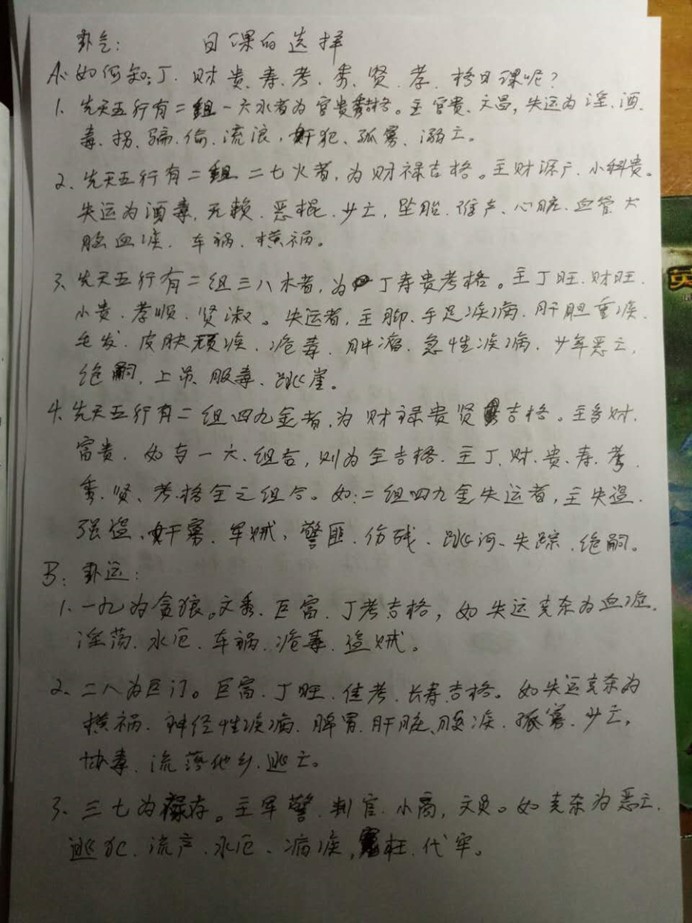 卦气： 日课的选择
A：如何知：丁、财、贵、寿、考、秀、贤、孝、格日课呢？
1、先天五行有二组一六水者为官贵秀格。主官贵、文昌，失运为淫、酒、
毒、拐、骗、偷、流浪、奸犯、孤寡、溺亡。
2、先天五行有二组二七火者，为财禄吉格。主财源广、小科贵。
失运为酒毒、无赖、恶棍、少亡、坠胎、难产、心脏、血管、大
脑血疾、车祸、横祸。
3、先天五行有二组三八木者，为丁寿贵考格。主丁旺、财旺、
小贵、孝顺、贤淑。失运者，主脚、手足疾病、肝胆重疾、
毛发、皮肤顽疾、疮毒、肿瘤、急性疾病、少年恶亡、
绝嗣、上吊、服毒、跳崖。
4、先天五行有二组四九金者，为财禄贵贤吉格。主多财、
富贵、如与一六、组合，则为全吉格、主丁、财、贵、寿、考、
秀、贤、考、格全之组合。如：二组四九金失运者，主失盗、
强盗、奸寡、军贼、警匪、伤残、跳河、失踪、绝嗣。
B：卦运：
1、一九为贪狼。文秀、巨富、丁考吉格，如失运克杂为血症、
淫荡、水厄、车祸、疮毒、盗贼。
2、二八为巨门。巨富、丁旺、佳考、长寿、吉格。如失运克杂为
横祸、神经性疾病、脾胃、肝脏、腹疾、孤寡、少亡、
吸毒、流落他乡、逃亡。
3、三七为禄存。主军警、判官、小商、文员。如克杂为恶亡、
逃犯、流产、水厄、病疾、冤枉、代牢。